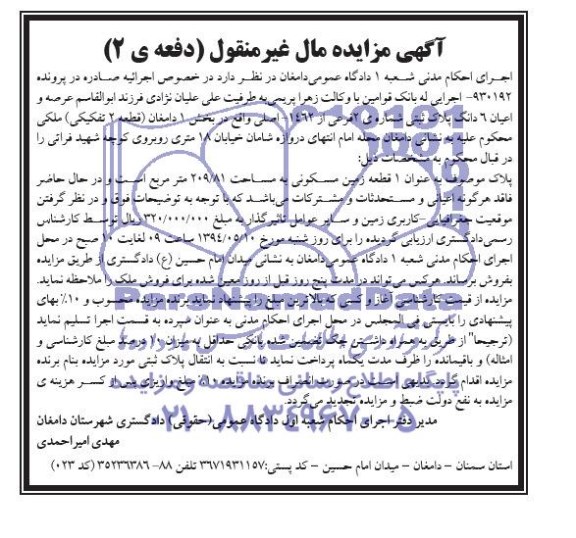 آگهی مزایده مال غیرمنقول (دفعه ی ۲)
اجرای احکام مدنی شعبه ۱ دادگاه عمومی دامغان در نظر دارد در خصوص اجرائیه صادره در پرونده
۹۳۰۱۹۲- اجرایی له بانک قوامین با وکالت زهرا پریمی به طرفیت علی علیان نژادی فرزند ابوالقاسم عرصه و
اعیان ۶ دانگ پلاک ثبتی شماره‌ی ۲فرعی از ۱۴۶۲- اصلی واقع در بخش ۱ دامغان (قطعه ۲ تفکیکی) ملکی
محکوم علیه به نشانی دامغان محله امام انتهای دروازه شامان خیابان ۱۸ متری روبروی کوچه شهید فراتی را
در قبال محکوم به مشخصات ذیل:
پلاک موصوف به عنوان ۱ قطعه زمین مسکونی به مساحت ۲۰۹/۸۱ متر مربع است و در حال حاضر
فاقد هرگونه اعیانی و مستحدثات و مشترکات می‌باشد که با توجه به توضیحات فوق و در نظر گرفتن
موقعیت جغرافیایی -کاربری زمین و سایر عوامل تاثیرگذار به مبلغ ۳۲۰/۰۰۰/۰۰۰ ریال توسط کارشناس
رسمی دادگستری ارزیابی گردیده را برای روز شنبه مورخ ۱۳۹۴/۰۵/۱۰ ساعت ۰۹ لغایت ۱۰ صبح در محل
اجرای احکام مدنی شعبه ۱ دادگاه عمومی دامغان به نشانی میدان امام حسین (ع) دادگستری از طریق مزایده
بفروش برساند. هرکس می‌تواند در مدت پنج روز قبل از روز معین شده برای فروش ملک را ملاحظه نماید.
مزایده از قیمت کارشناسی آغاز و کسی که بالاترین مبلغ را پیشنهاد نماید برنده مزایده محسوب و ۱۰٪ بهای
پیشنهادی را بایستی فی المجلس در محل اجرای احکام مدنی به عنوان سپرده به قسمت اجرا تسلیم نماید
(ترجیحا" از طریق به همراه داشتن چک تضمین شده بانکی حداقل به میزان ۱۰ درصد مبلغ کارشناسی و
امثاله) و باقیمانده را ظرف مدت یکماه پرداخت نماید تا نسبت به انتقال پلاک ثبتی مورد مزایده بنام برنده
مزایده اقدام گردد. بدیهی است در صورت انصراف برنده مزایده ۱۰٪ مبلغ واریزی پس از کسر هزینه ی
مزایده به نفع دولت ضبط و مزایده تجدید می‌گردد.
مدیر دفتر اجرای احکام شعبه اول دادگاه عمومی(حقوقی) دادگستری شهرستان دامغان
مهدی امیراحمدی
استان سمنان - دامغان - میدان امام حسین - کد پستی:۳۶۷۱۹۳۱۱۵۷ تلفن ۸۸- ۳۵۲۳۶۳۸۶ (کد ۰۲۳)
ParsNamadData
۰۲۱-۸۸۳۴۹۶۷۰-۵